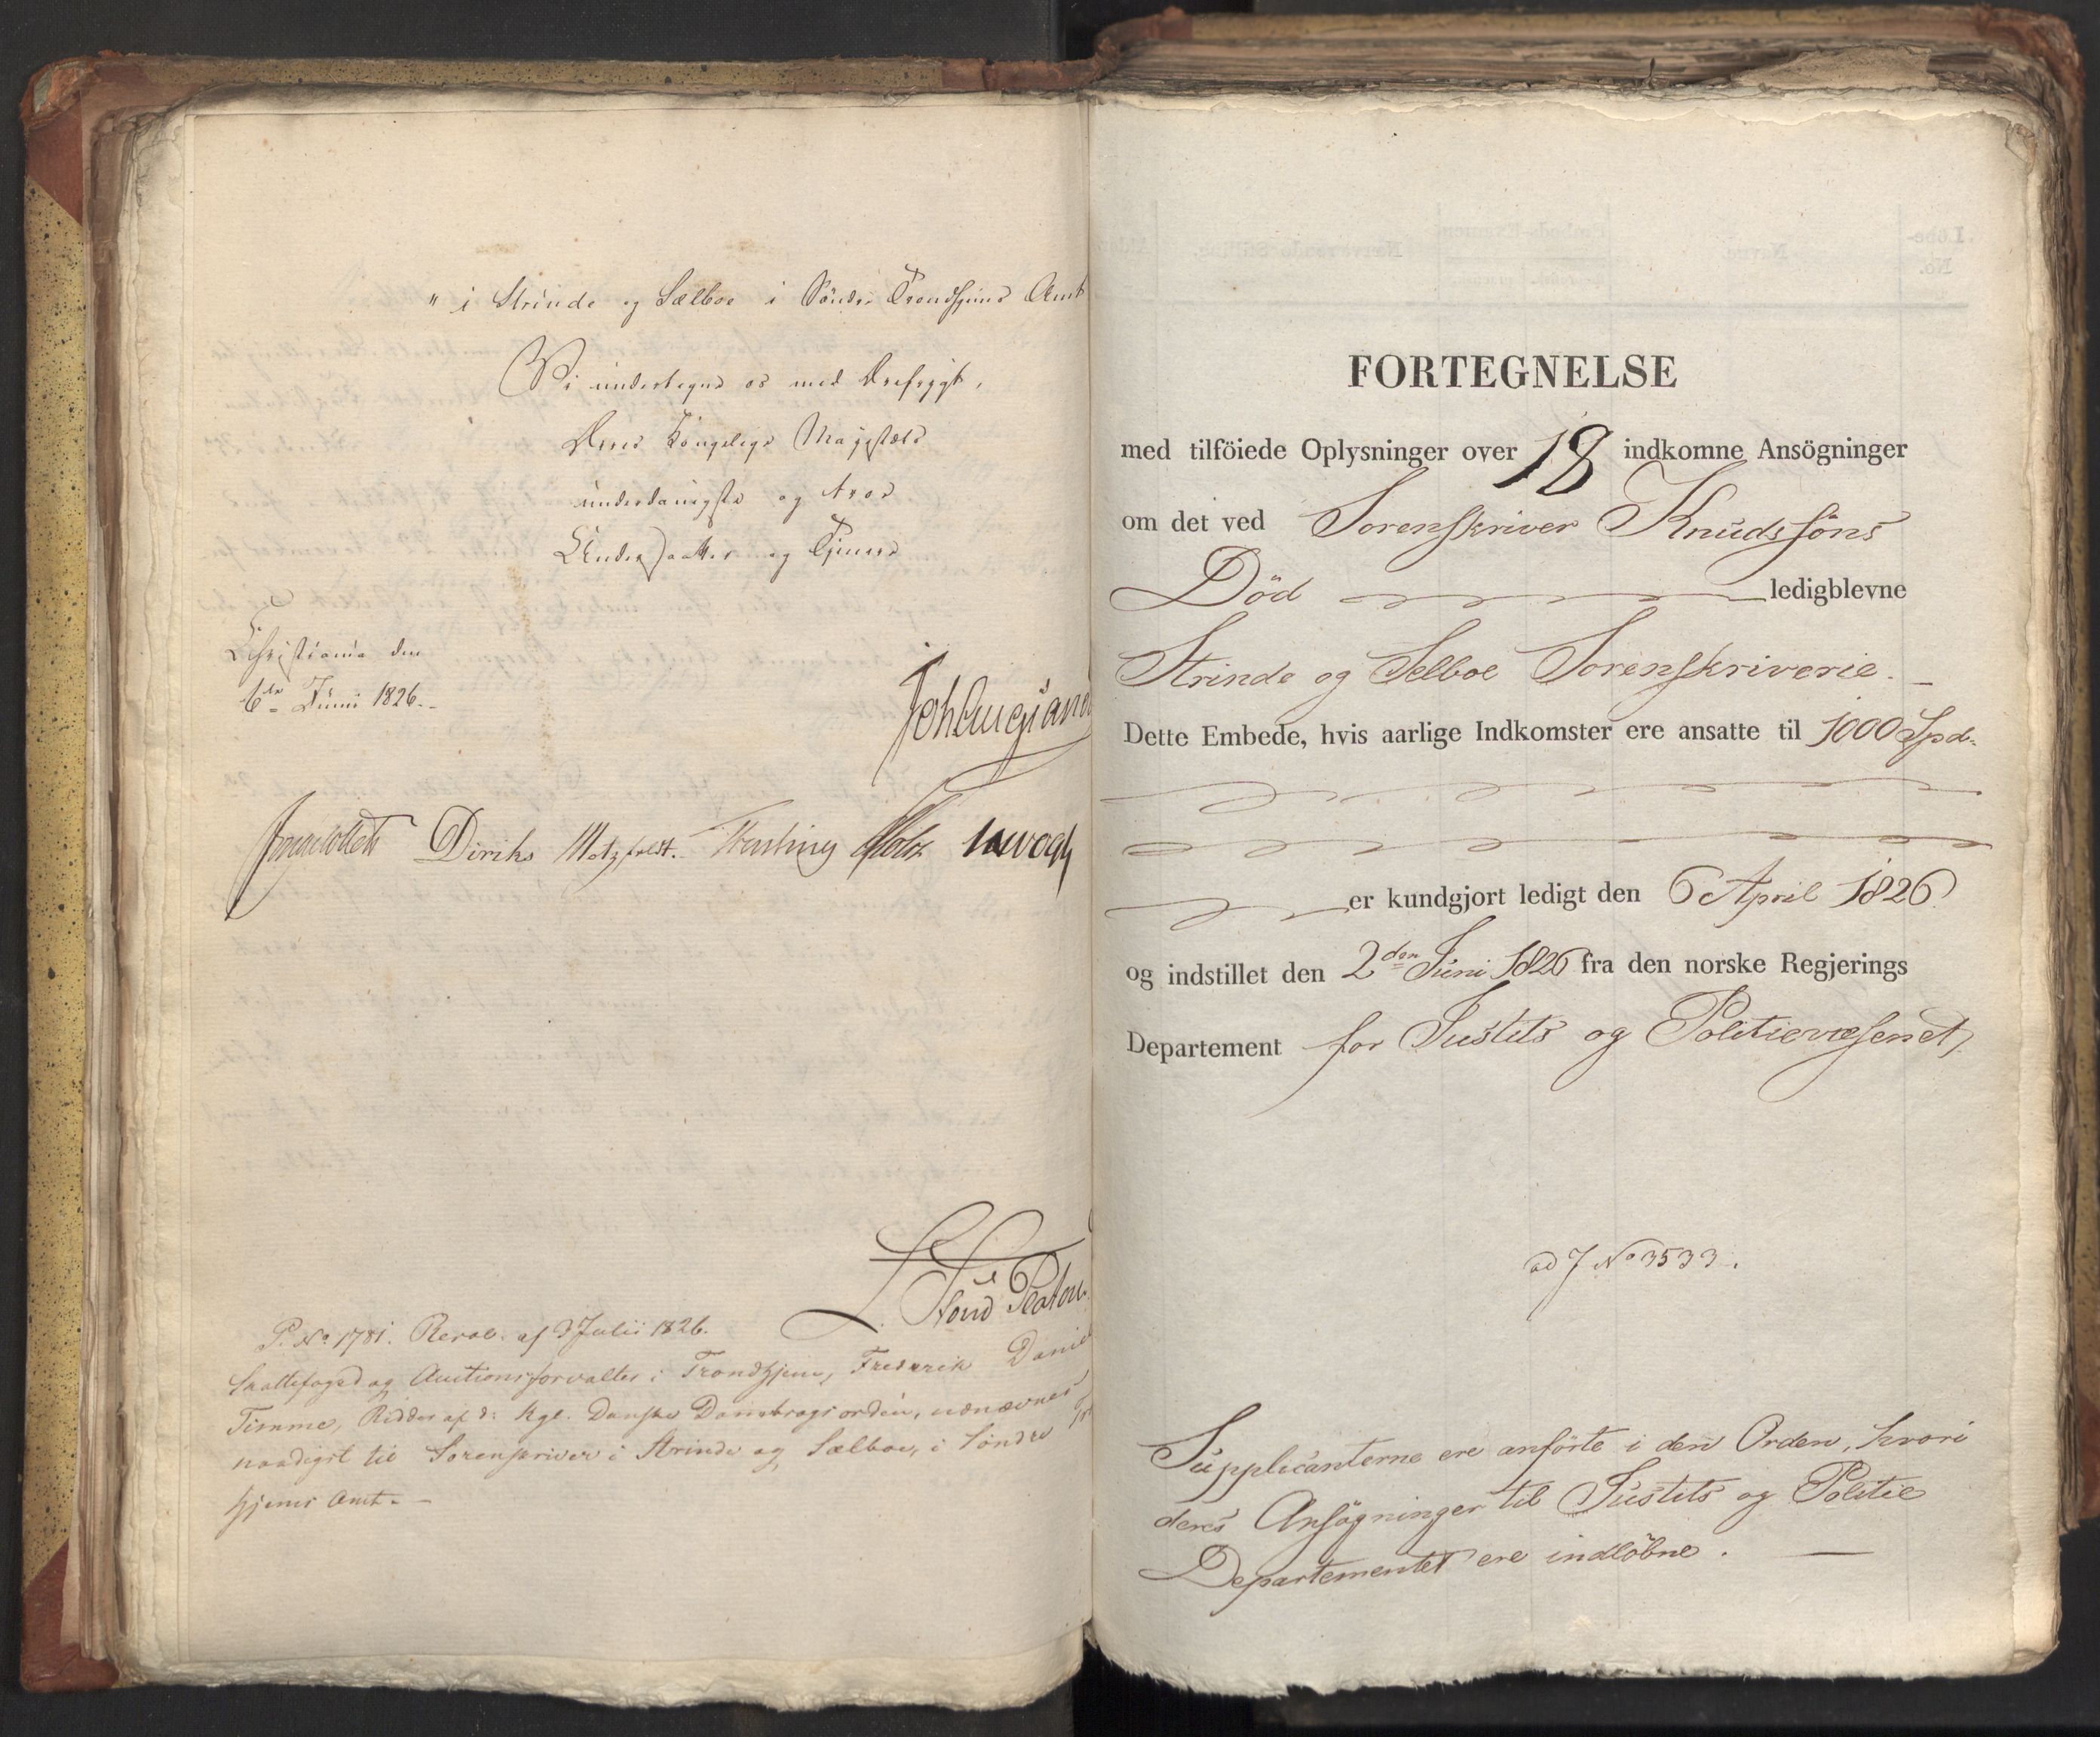 " i Strinde og Sælboe i Söndre Trondhjems Amt
Vi undertegne os med Ærefrygt,
Deres Kongelige Majestæts
underdanigste og troe
Undersaatter og Tjenere
Christiania den
6te Junii 1826.
Joh Collett Diriks Motzfeldt. Fasting Holst
P. No 1781. Resol. af 3 Julii 1826.
Skattefoged og Auctionsforvalter i Trondhjem, Frederik Daniel
Timme, Ridder af d: Kgl. Danske Dannebrogsorden, udnævnes
naadigst til Sorenskriver i Strinde og Sælboe, i Söndre
hjems Amt. -
FORTEGNELSE
med tilföiede Oplysninger over 18 indkomne Ansögninger
om det ved Sorenskriver Knudssöns
Död ledigblevne
Strinde og Selboe Sorenskriverie. -
Dette Embede, hvis aarlige Indkomster ere ansatte til 1000 Spd.
er kundgjort ledigt den 6 April 1826
og indstillet den 2den Juni 1826 fra den norske Regjerings
Departement for Justits og Politievæsenet,
ad J No 3533.
Supplicanterne ere anförte i den Orden, hvori
deres Ansögninger til Justits og Politie
Departementet ere indlöbne. -